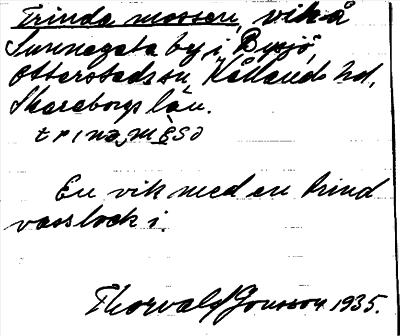 Trinda mossen, vik å
Sunnegata by i Bysjö,
Otterstads sn, Kållands hd,
Skaraborgs län.
En vik med en trind
vassbock i.
Thorvald Jonsson 1935.